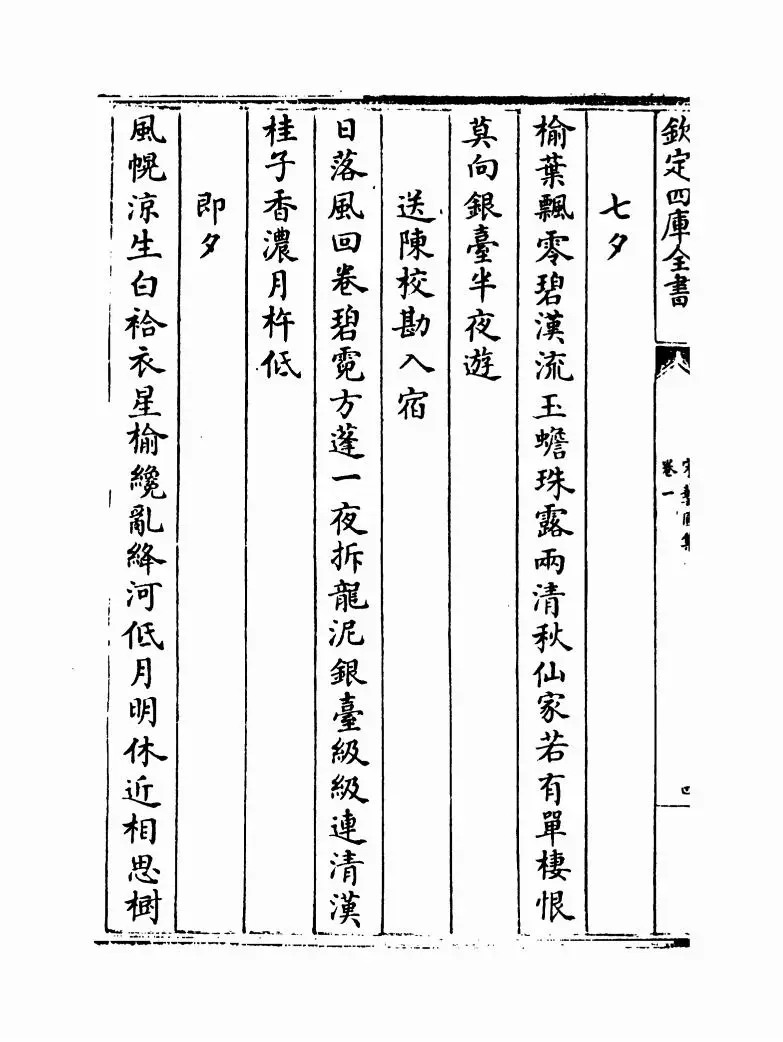 欽定四庫全書
卷一
七夕
榆葉飄零碧漢流玉蟾珠露兩清秋仙家若有單棲恨
莫向銀臺半夜遊
送陳校勘入宿
日落風回卷碧霓方蓬一夜拆龍泥銀臺級級連清漢
桂子香濃月杵低
即夕
風幌涼生白袷衣星榆纔亂絳河低月明休近相思樹